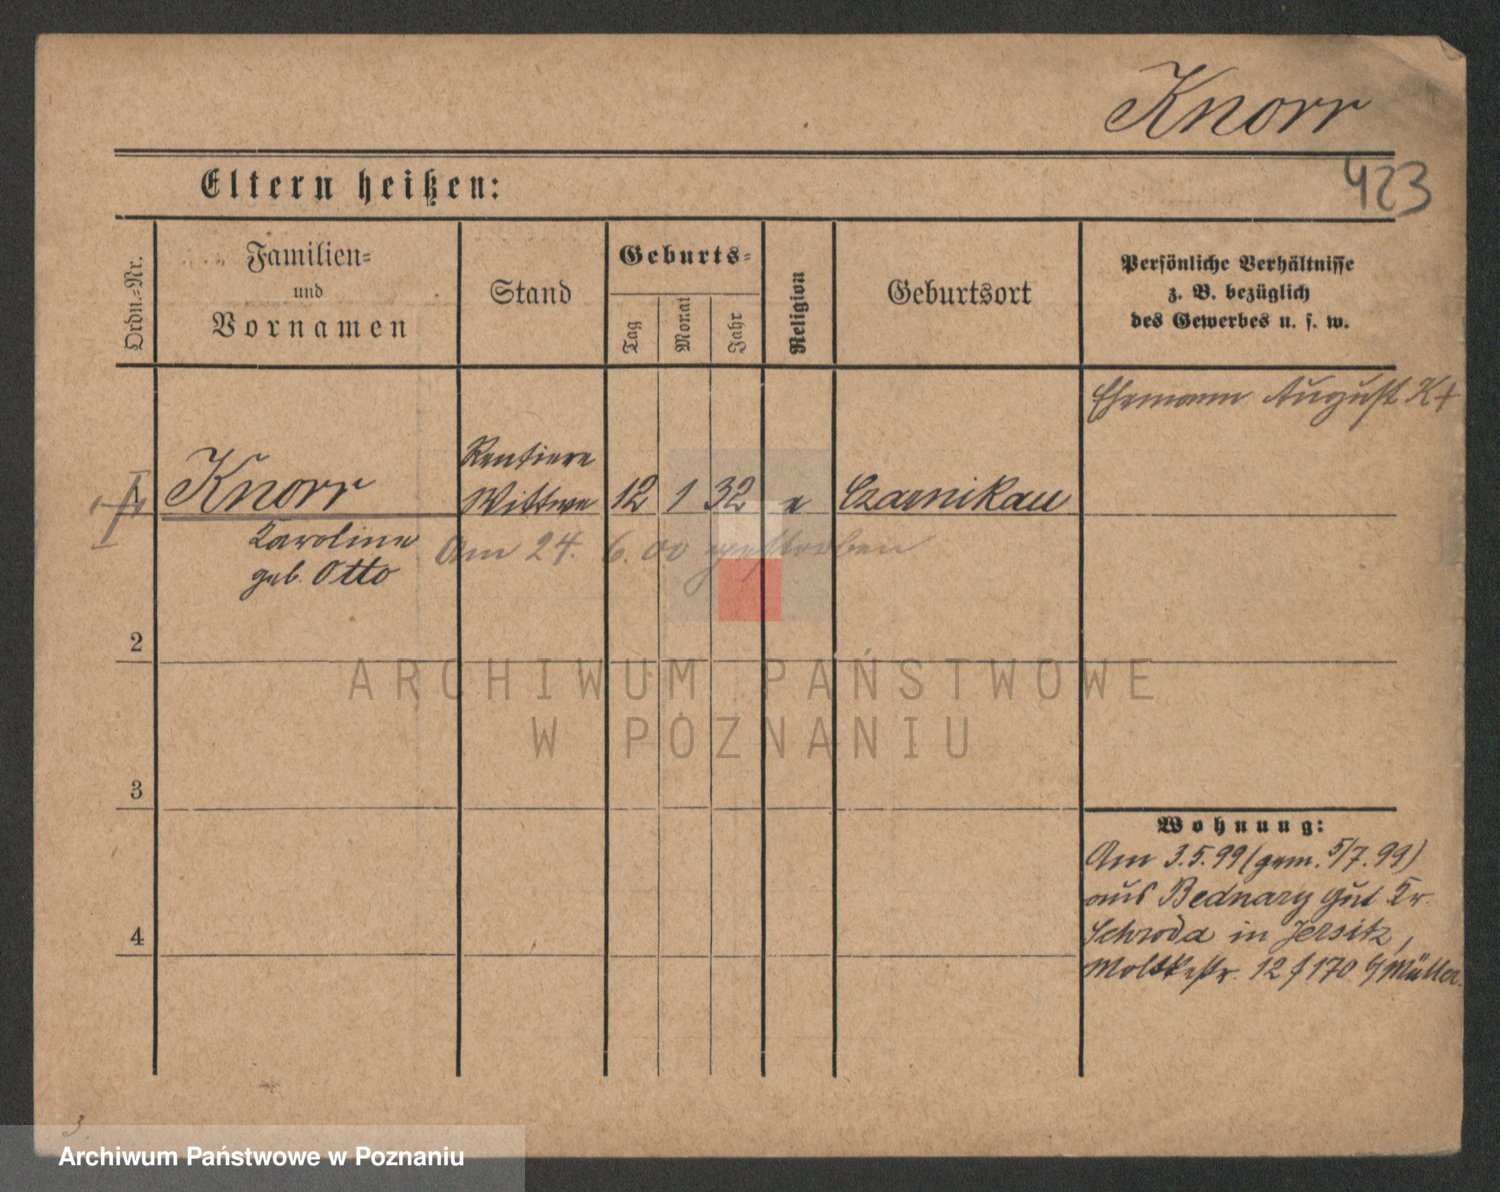 Knorr
423
Eltern heißen:
Ordn.-Nr.
Familien-
und
Vornamen
Stand
Geburts-
Tag
Monat
Jahr
Religion
Geburtsort
Persönliche Verhältnisse
z. B. bezüglich
des Gewerbes u. s. w.
Ehemann August K +
Knorr
Rentiere
Wittwe
12 1 32 e Czarnikau
Karoline
geb. Otto
Am 24. 6. 00 gestorben
2
3
4
Wohnung:
Am 3.5.99 (gem. 5/7.99)
aus Bednary Gut Kr.
Schroda in Jersitz,
Moltkestr. 12 f 170 b/ Müller.
3.
ARCHIWUM PAŃSTWOWE
W POZNANIU
Archiwum Państwowe w Poznaniu